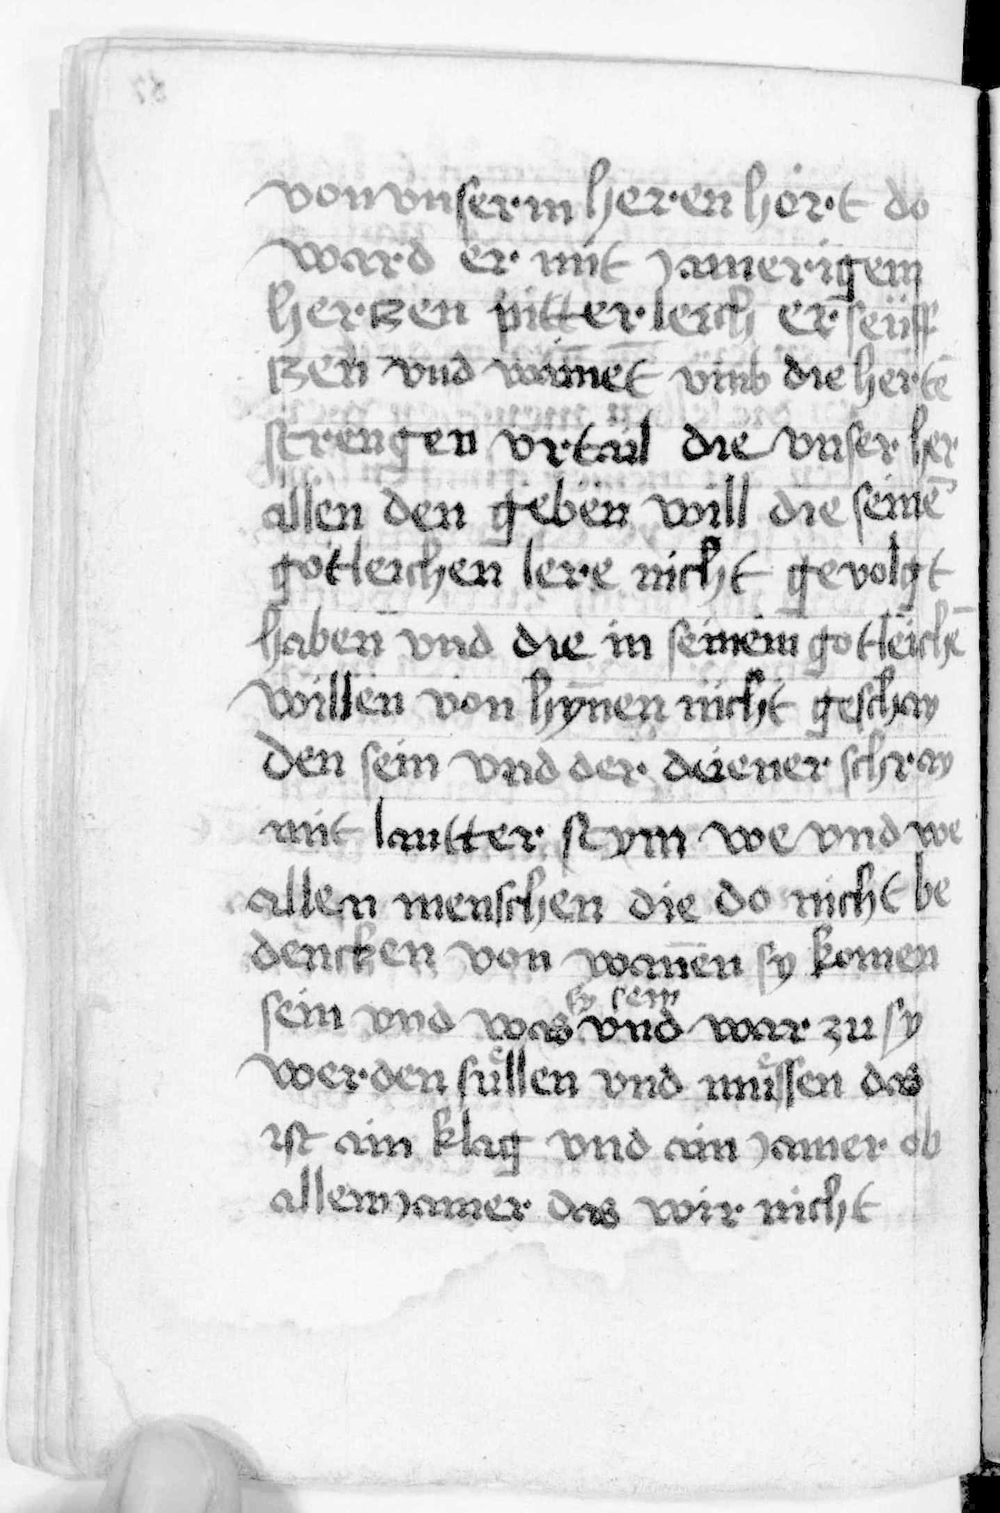 von vnserm heren hört do
ward er mit jamerigem
herczen pitterleich erseüff
czen vnd wainet vmb die hertē
strengen vrtail die vnser her
allen den geben will die seinē
gotleichen lere nicht gevolgt
haben vnd die in seinem gotleichē
willen von hynen nicht geschay
den sein vnd der diener schray
mit lautter stym we vnd we
allen menschen die do nicht be
dencken von wannen sy komen
sein vnd was sy sein vnd war zu sy
werden süllen vnd müssen das
ist ain klag vnd ain jamer ob
allem jamer das wir nicht